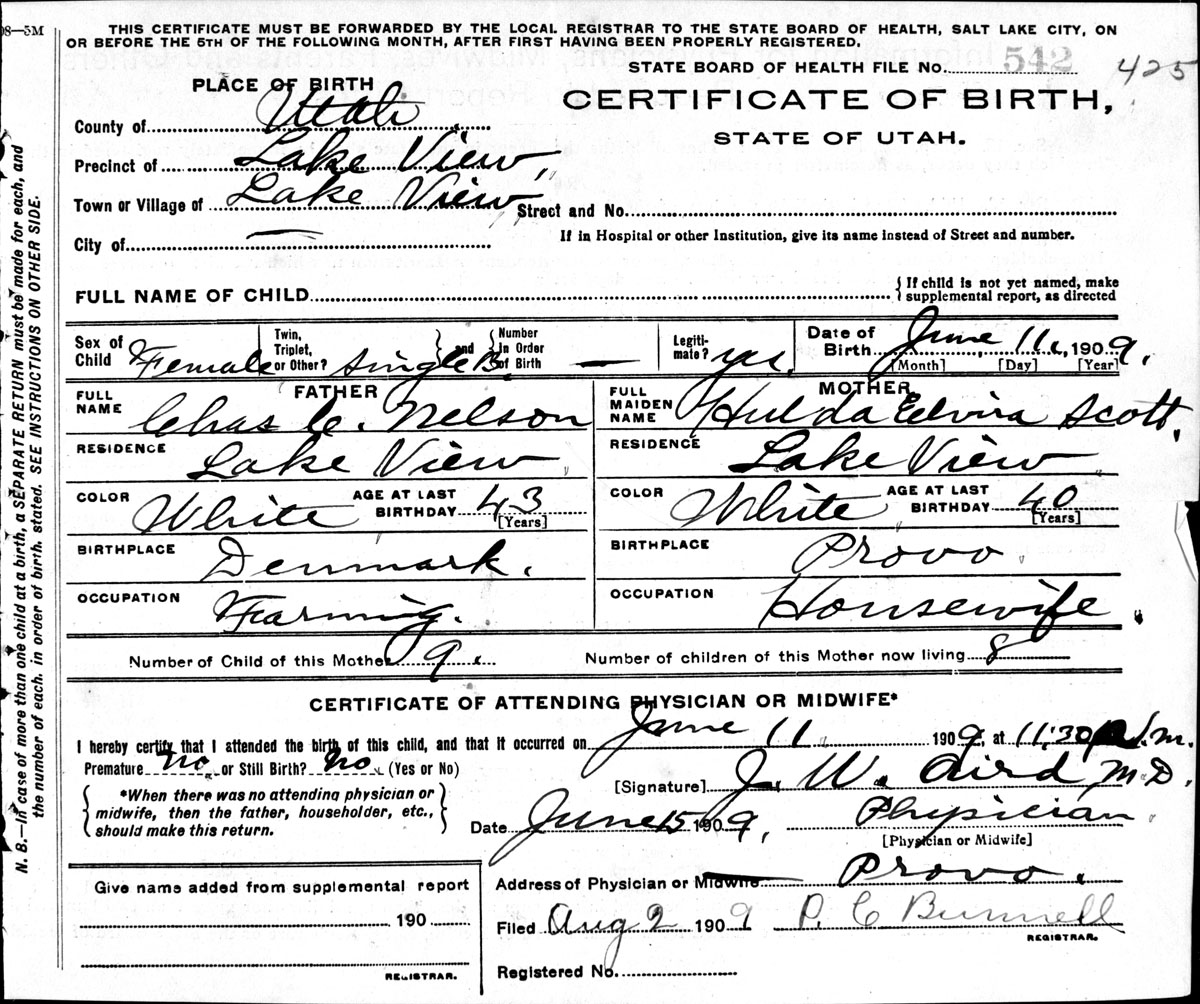 08—5M
THIS CERTIFICATE MUST BE FORWARDED BY THE LOCAL REGISTRAR TO THE STATE BOARD OF HEALTH, SALT LAKE CITY, ON
OR BEFORE THE 5TH OF THE FOLLOWING MONTH, AFTER FIRST HAVING BEEN PROPERLY REGISTERED.
STATE BOARD OF HEALTH FILE No. 542 425
PLACE OF BIRTH
CERTIFICATE OF BIRTH,
STATE OF UTAH.
County of Utah
Precinct of Lake View,
Town or Village of Lake View, Street and No.
City of —
If in Hospital or other Institution, give its name instead of Street and number.
FULL NAME OF CHILD
{ If child is not yet named, make
supplemental report, as directed
Sex of Child Female
Twin, Triplet, or Other? Single
and Number In Order of Birth —
Legiti- mate? yes.
Date of Birth June 11, 1909.
[Month] [Day] [Year]
FATHER
FULL NAME Chas C. Nelson
RESIDENCE Lake View
COLOR White AGE AT LAST BIRTHDAY 43 [Years]
BIRTHPLACE Denmark.
OCCUPATION Farming.
MOTHER
FULL MAIDEN NAME Hulda Elvira Scott.
RESIDENCE Lake View
COLOR White AGE AT LAST BIRTHDAY 40 [Years]
BIRTHPLACE Provo.
OCCUPATION Housewife.
Number of Child of this Mother 9. Number of children of this Mother now living 8
CERTIFICATE OF ATTENDING PHYSICIAN OR MIDWIFE*
I hereby certify that I attended the birth of this child, and that it occurred on June 11 1909, at 11:30 P.m.
Premature no. or Still Birth? no. (Yes or No)
[Signature] J. W. Aird M.D.
{ *When there was no attending physician or
midwife, then the father, householder, etc.,
should make this return. }
Date June 15 1909, Physician.
[Physician or Midwife]
Address of Physician or Midwife Provo.
Filed Aug 2 1909 P. C Bunnell
REGISTRAR.
Registered No.
Give name added from supplemental report
190
REGISTRAR.
N. B.—In case of more than one child at a birth, a SEPARATE RETURN must be made for each, and
the number of each, in order of birth, stated. SEE INSTRUCTIONS ON OTHER SIDE.